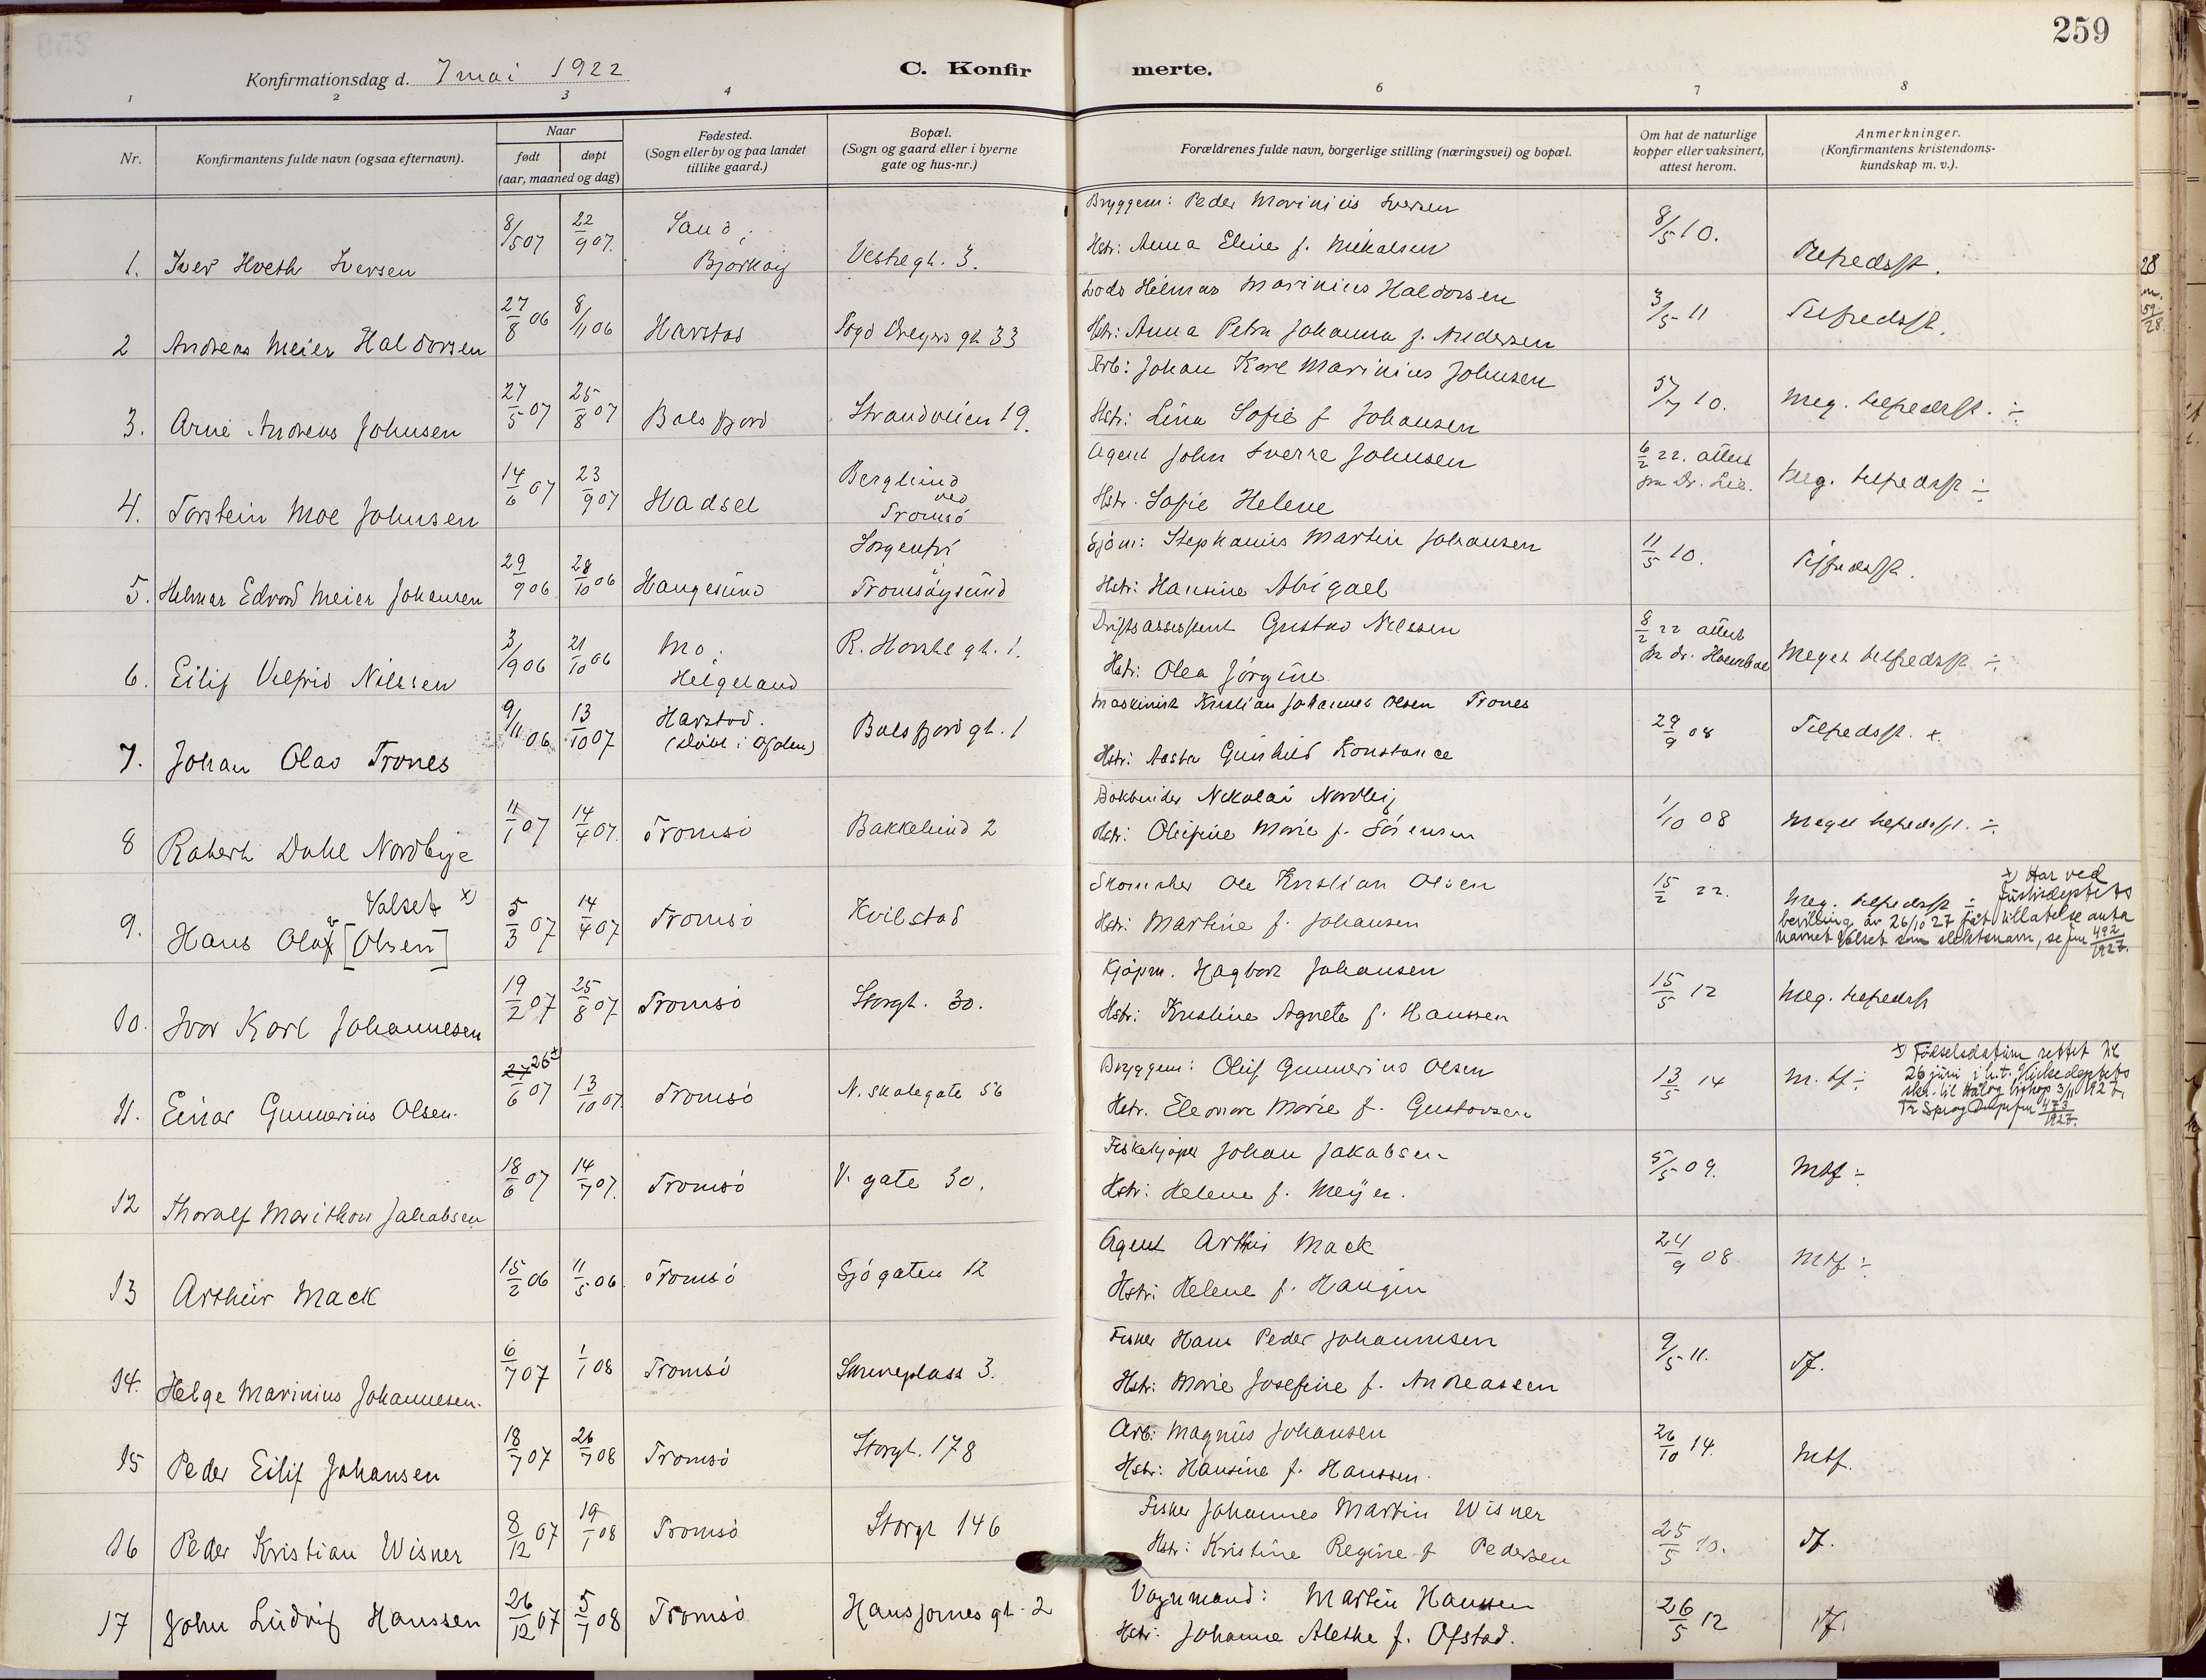 259
Konfirmationsdag d. 7 mai 1922
C. Konfirmerte.
1 2 3 4 6 7 8
Nr.
Konfirmantens fulde navn (ogsaa efternavn).
Naar
født døpt
(aar, maaned og dag)
Fødested.
(Sogn eller by og paa landet
tillike gaard.)
Bopæl.
(Sogn og gaard eller i byerne
gate og hus-nr.)
Forældrenes fulde navn, borgerlige stilling (næringsvei) og bopæl.
Om hat de naturlige
kopper eller vaksinert,
attest herom.
Anmerkninger.
(Konfirmantens kristendoms-
kundskap m. v.).
1. Iver Hveth Iversen 8/5 07 22/9 07. Sand, Bjarkøy Vestregt. 3.
Bryggem: Peder Marinius Iversen
Hstr: Anna Eline f. Mikalsen
8/5 10. Tilfredsst.
2 Andreas Meier Haldorsen 27/8 06 8/11 06 Harstad Fogd Dreyers gt 33
Lods Hilmar Marinius Haldorsen
Hstr: Anna Petra Johanna f. Andersen
3/5 11 Tilfredsst.
3. Arne Andreas Johnsen 27/5 07 25/8 07 Balsfjord Strandveien 19.
Arb: Johan Karl Marinius Johnsen
Hstr: Lina Sofie f Johansen
5/7 10. Meg. tilfredsst. ÷
4. Torstein Moe Johnsen 14/6 07 23/9 07 Hadsel Berglund ved Tromsö
Agent John Sverre Johnsen
Hstr. Sofie Helene
6/2 22. attest fra Dr. Lie. Meg. tilfredsst ÷
5. Helmar Edvard Meier Johansen 29/9 06 28/10 06 Haugesund Sorgenfri i Tromsöysund
Sjöm: Stephanus Martin Johansen
Hstr: Hansine Abigael
11/5 10. Tilfredsst.
6. Eilif Vilfrid Nilssen 3/9 06 21/10 06 Mo, Helgeland R. Horsts gt. 1.
Driftsassistent Gustav Nilssen
Hstr: Olea Jörgine
8/2 22 attest fra dr. Meget tilfredsst. ÷
7. Johan Olav Trones 9/11 06 13/10 07 Harstad. (Döbt i Ofoten) Balsfjordgt. 1
Maskinist Kristian Johannes Olsen Trones
Hstr: Aasta Gunhild Konstance
29/9 08 Tilfredsst. x
8 Robert Dahl Nordbye 11/1 07 14/4 07. Tromsö Bakkelund 2
Bokbinder Nikolai Nordby
Hstr: Olufine Marie f. Sörensen
1/10 08 Meget tilfredsst. ÷
9. Hans Olav [Olsen] Valset x) 5/3 07 14/4 07 Tromsö Kvilstad
Skomaker Ole Kristian Olsen
Hstr: Martine f. Johansen
15/2 22. Meg. tilfredsst ÷
x) Har ved
Justisdeptets
bevilling av 26/10 27 fåt tillatelse anta
navnet Valset som slektsnavn, se jnr 492/1927.
10. Ivar Karl Johannesen 19/2 07 25/8 07 Tromsö Storgt. 30.
Kjöpm. Hagbart Johansen
Hstr: Kristine Agnete f. Hanssen
15/5 12 Meg. tilfredsst
11. Einar Gunnerius Olsen. 27 26 x)/6 07 13/10 07. Tromsö N. Skolegate 56
Bryggem: Oluf Gunnerius Olsen
Hstr. Eleonore Marie f. Gustavsen
13/5 14 M. tf ÷
x) Födselsdatum rettet til
26 juni i h.t. Kirkedeptets
skr. til Hålog biskop 3/11 1927,
Tr Sprog jnr 473/1927.
12 Thoralf Marithon Jakobsen 18/6 07 14/7 07. Tromsö V. gate 30.
Fiskekjöper Johan Jakobsen
Hstr: Helene f. Meyer.
5/5 09. Mtf ÷
13 Arthur Mack 15/2 06 11/5 06. Tromsö Sjögaten 12
Agent Arthur Mack
Hstr: Helene f. Haugen
24/9 08. Mtf ÷
14. Helge Marinius Johannesen. 6/7 07 1/1 08 Tromsö Skanseplass 3.
Fisker Hans Peder Johannesen
Hstr: Marie Josefine f. Andreassen
9/5 11. Tf.
15 Peder Eilif Johansen 18/7 07 26/7 08 Tromsö Storgt. 178
Arb: Magnus Johansen
Hstr: Hansine f. Hanssen.
26/10 14. Mtf.
16 Peder Kristian Wisner 8/12 07 19/1 08 Tromsö Storgt 146
Fisker Johannes Martin Wisner
Hstr: Kristine Regine f Pedersen
25/5 10. Tf.
17 John Ludvig Hanssen 26/12 07 5/7 08 Tromsö Hansjordnesgt. 2
Vognmand: Martin Hanssen
Hstr. Johanne Alethe f. Ofstad.
26/5 12 Tf.